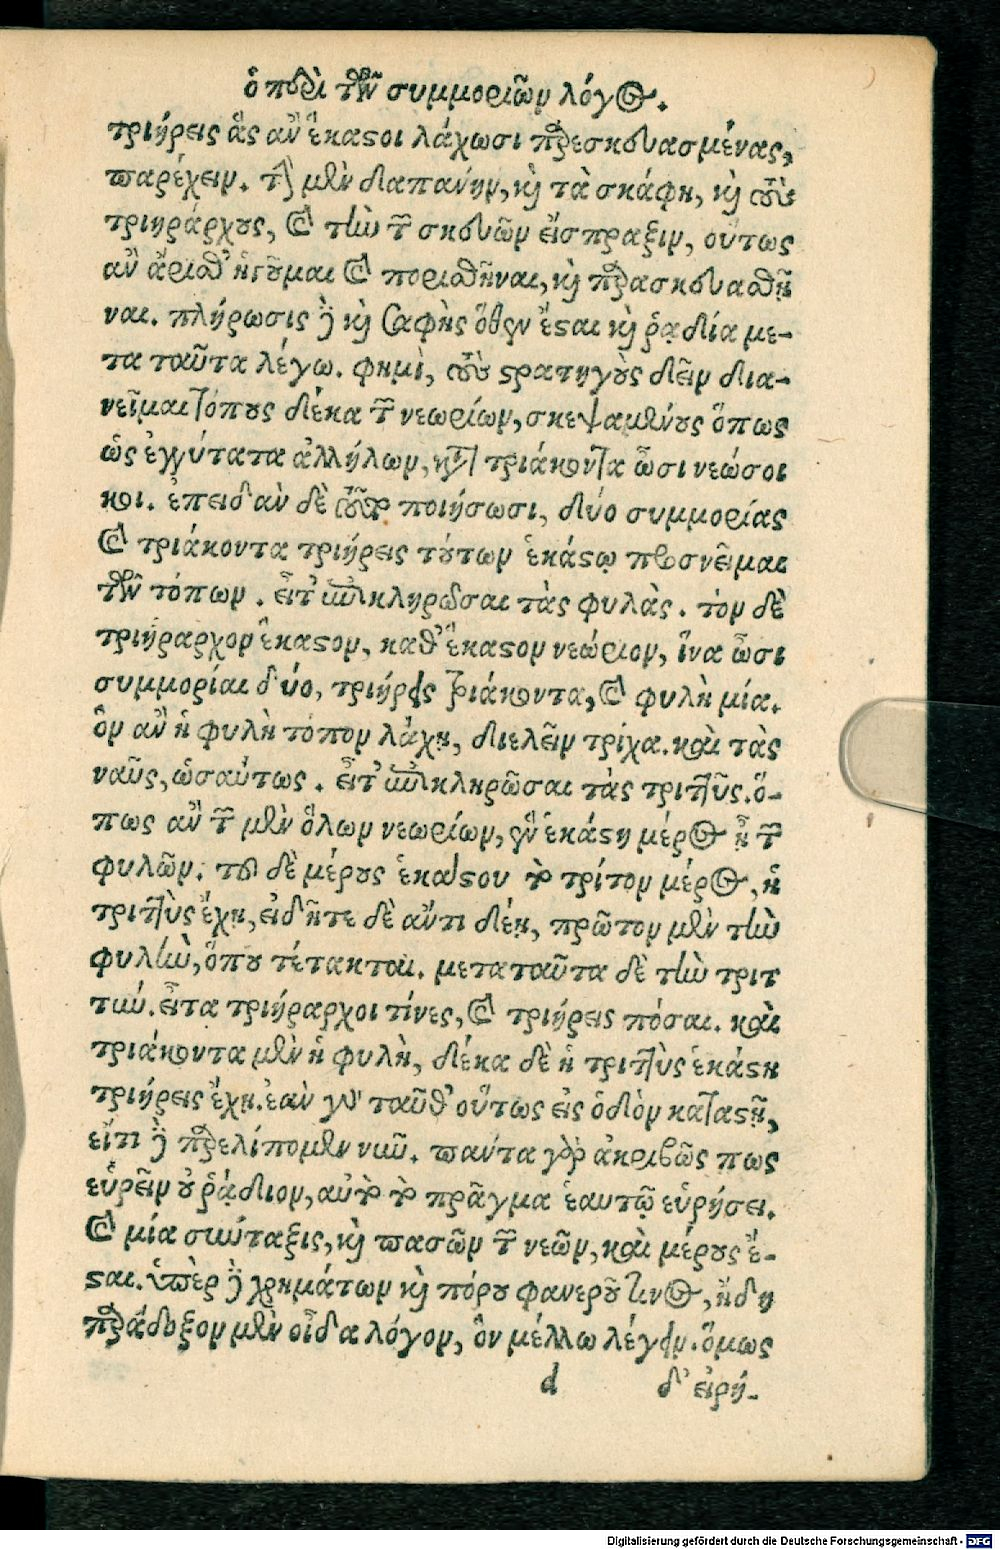 ὁ περὶ τῶν συμμοριῶν λόγος.
τριήρεις ἃς ἂν ἕκαστοι λάχωσι παρεσκευασμένας,
παρέχειν. τὴν μὲν δαπάνην, καὶ τὰ σκάφη, καὶ τοὺς
τριηράρχους, καὶ τὴν τῶν σκευῶν εἴσπραξιν, οὕτως
ἂν ἄρισθ' ἡγοῦμαι καὶ πορισθῆναι, καὶ παρασκευασθῆ
ναι. πλήρωσις δὲ καὶ σαφὴς ὅθεν ἔσται καὶ ῥᾳδία με-
τα ταῦτα λέγω. φημὶ, τοὺς στρατηγοὺς δεῖν δια-
νεῖμαι τόπους δέκα τῶν νεωρίων, σκεψαμένους ὅπως
ὡς ἐγγύτατα ἀλλήλων, κατὰ τριάκοντα ὦσι νεώσοι
κοι. ἐπειδὰν δὲ τοῦτο ποιήσωσι, δύο συμμορίας
καὶ τριάκοντα τριήρεις τούτων ἑκάστῳ προσνεῖμαι
τῶν τόπων. εἶτ' ἐπικληρῶσαι τὰς φυλὰς. τὸν δὲ
τριήραρχον ἕκαστον, καθ' ἕκαστον νεώριον, ἵνα ὦσι
συμμορίαι δύο, τριήρεις τριάκοντα, καὶ φυλὴ μία.
ὃν ἂν ἡ φυλὴ τόπον λάχῃ, διελεῖν τρίχα. καὶ τὰς
ναῦς, ὡσαύτως. εἶτ' ἐπικληρῶσαι τὰς τριττῦς. ὅ-
πως ἂν τῶν μὲν ὅλων νεωρίων, ἓν ἑκάστη μέρος ᾖ τῶν
φυλῶν. τοῦ δὲ μέρους ἑκάστου τὸ τρίτον μέρος, ἡ
τριττὺς ἔχῃ, εἰδῆτε δὲ ἄν τι δέῃ, πρῶτον μὲν τὴν
φυλὴν, ὅπου τέτακται. μετα ταῦτα δὲ τὴν τριτ
τύν. εἶτα τριήραρχοι τίνες, καὶ τριήρεις πόσαι. καὶ
τριάκοντα μὲν ἡ φυλὴ, δέκα δὲ ἡ τριττὺς ἑκάστη
τριήρεις ἔχῃ. ἐὰν γὰρ ταῦθ' οὕτως εἰς ὁδὸν καταστῇ,
εἴ τι καὶ παρελίπομεν νυν. πάντα γὰρ ἀκριβῶς πως
εὑρεῖν οὐ ῥᾴδιον, αὐτὸ τὸ πρᾶγμα ἑαυτῷ εὑρήσει.
καὶ μία σύνταξις, καὶ πασῶν τῶν νεῶν, καὶ μέρους ἔ-
σται. ὑπὲρ δὲ χρημάτων καὶ πόρου φανεροῦ τινος, ἤδη
παράδοξον μὲν οἶδα λόγον, ὃν μέλλω λέγειν. ὅμως
d δ' εἰρή-
Digitalisierung gefördert durch die Deutsche Forschungsgemeinschaft - DFG